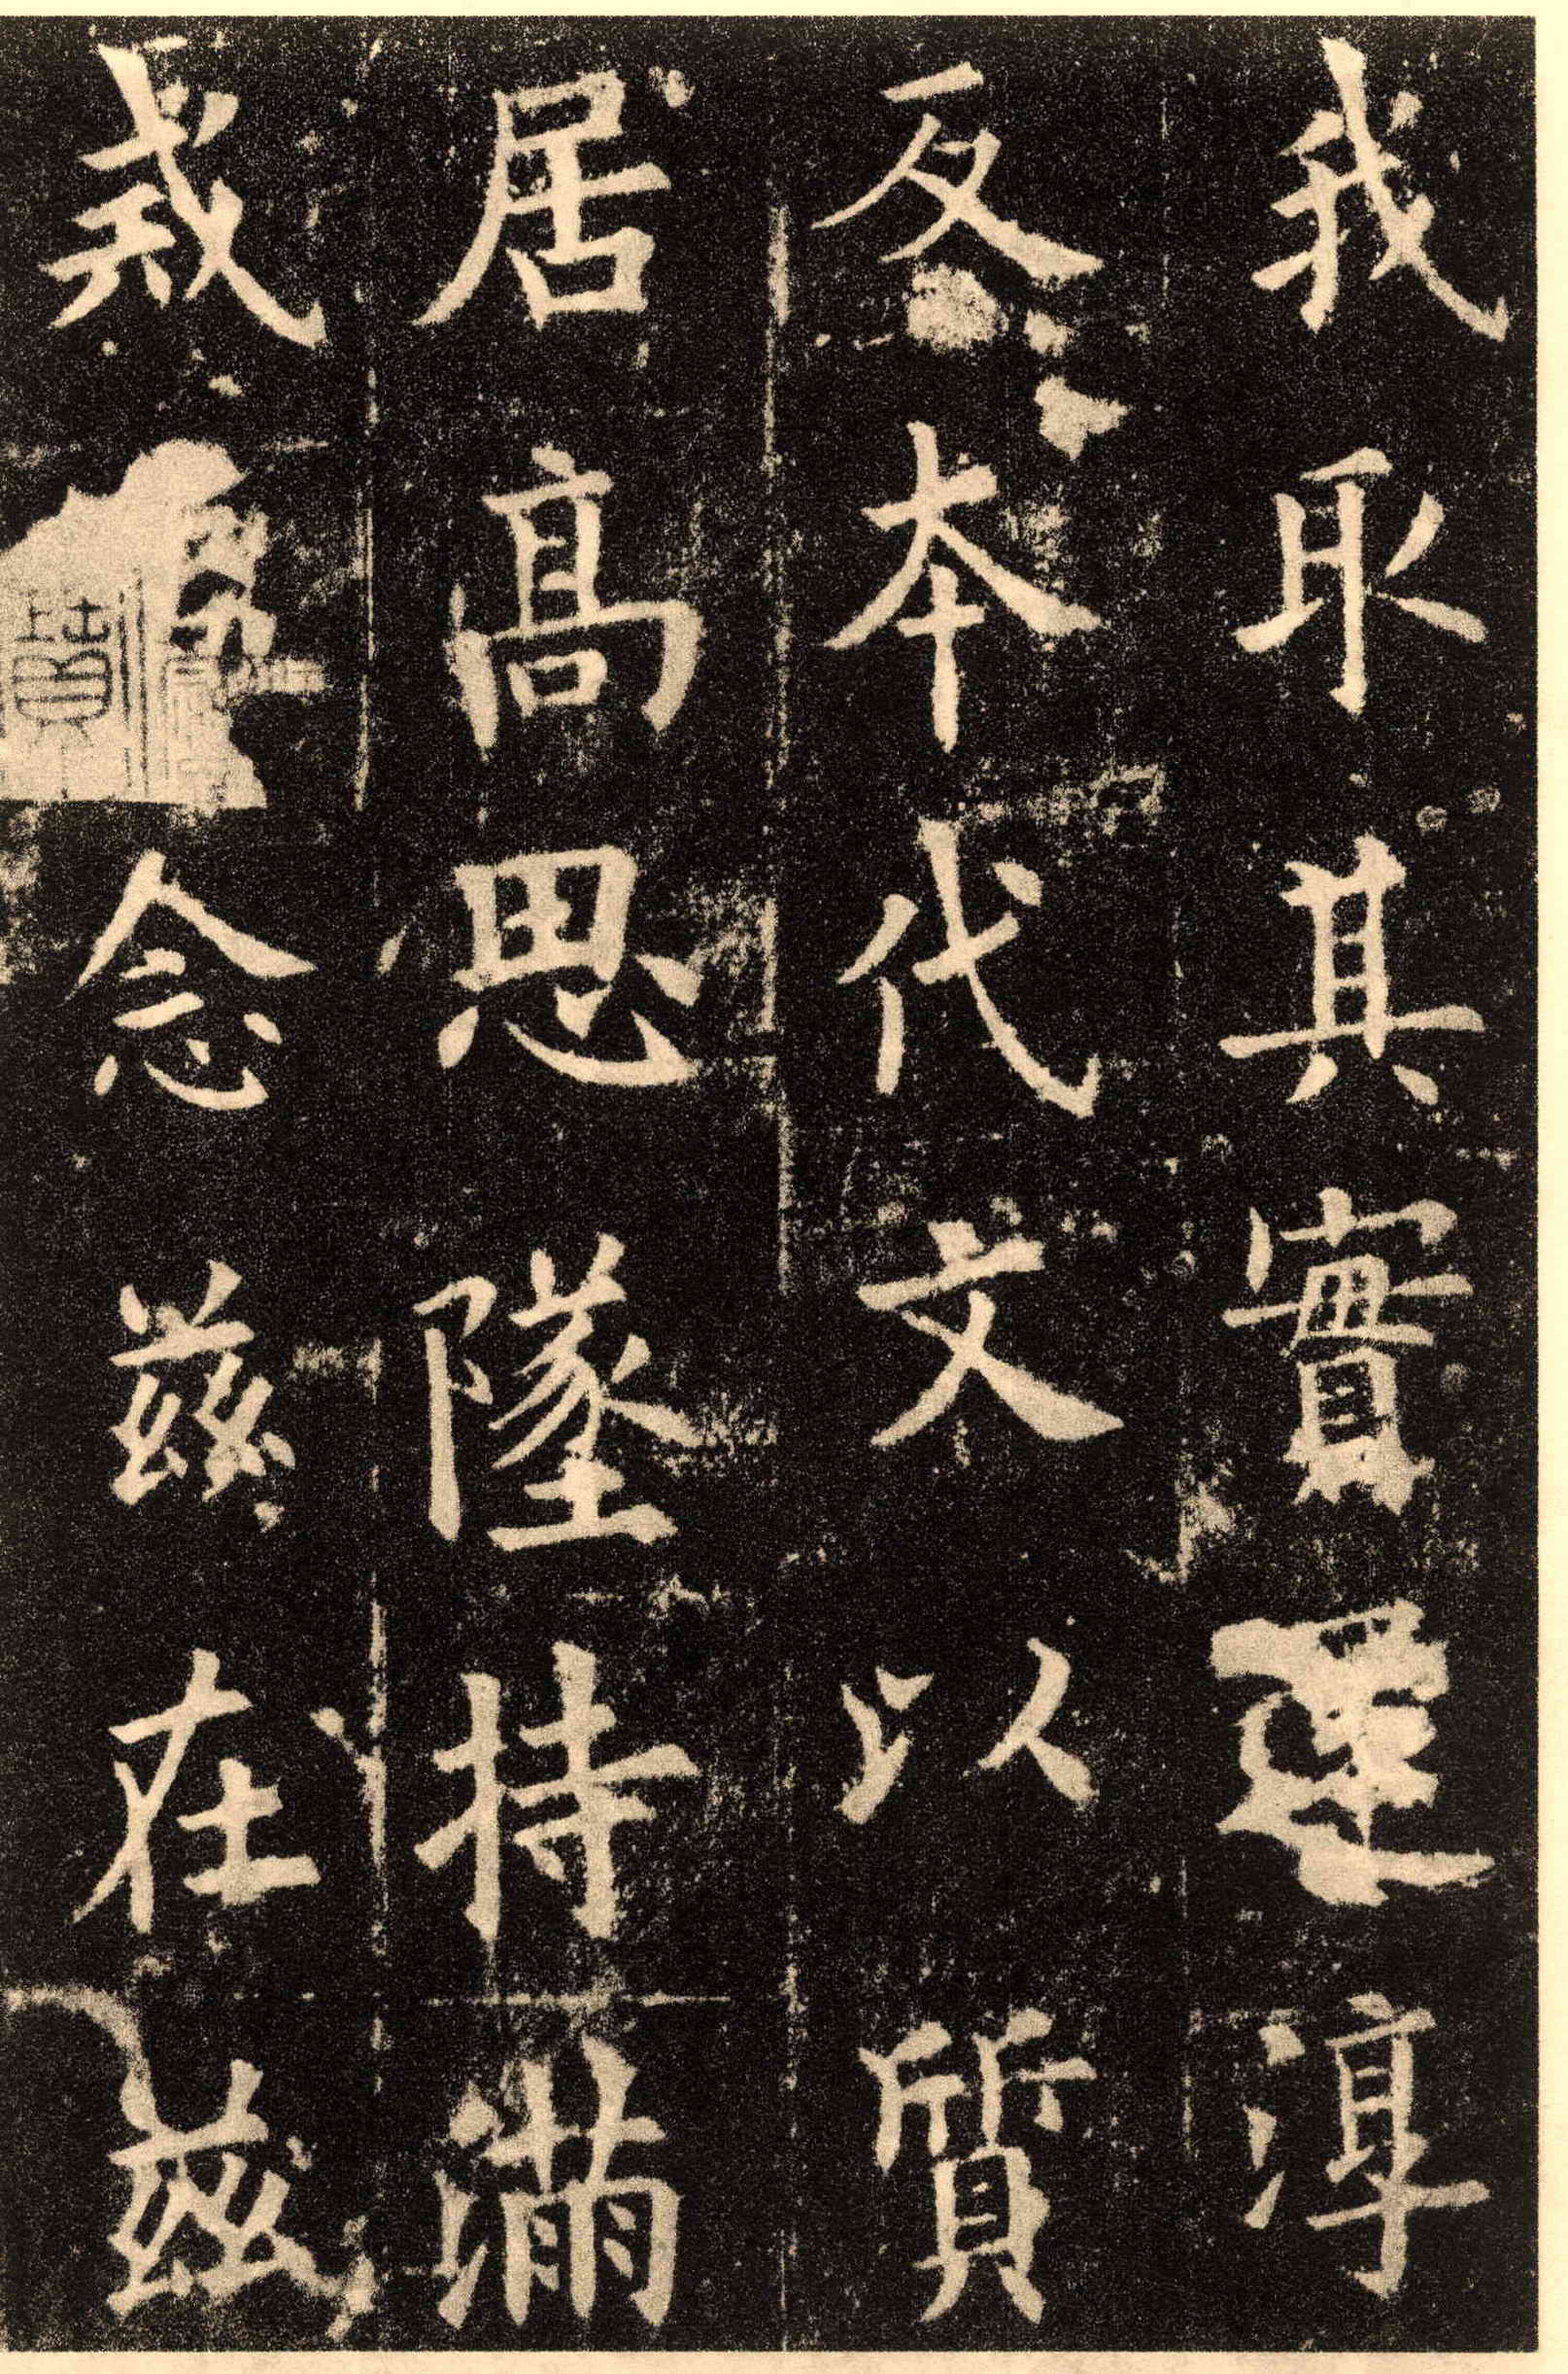 我取其實還淳
反本代文以質
居高思墜持滿
戒念兹在兹